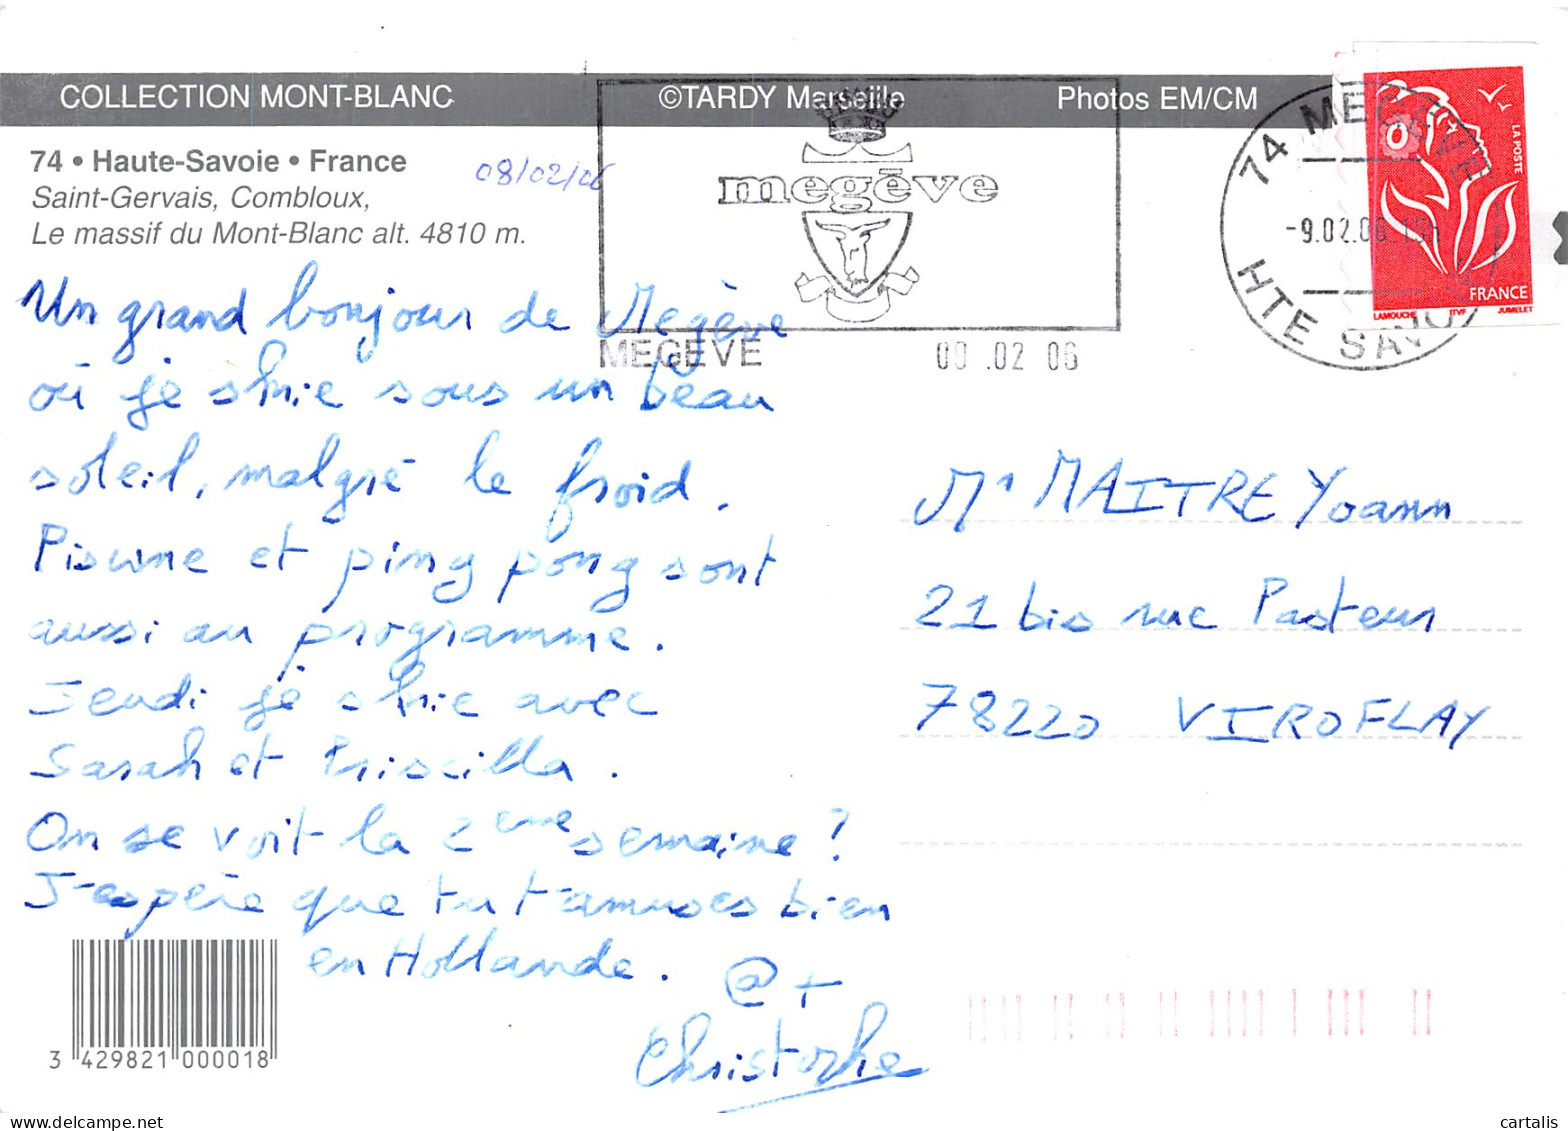 COLLECTION MONT-BLANC ©TARDY Marseille Photos EM/CM
74 • Haute-Savoie • France
Saint-Gervais, Combloux,
Le massif du Mont-Blanc alt. 4810 m.
08/02/06
megève
MEGEVE 09.02 06
74 MEGEVE
-9.02.06.15h
HTE SAVOIE
LA POSTE
FRANCE
LAMOUCHE ITVF JUMELET
Un grand bonjour de Megève
où je skie sous un beau
soleil, malgré le froid.
Piscine et ping pong sont
aussi au programme.
Jeudi je skie avec
Sarah et Priscilla.
On se voit la 2eme semaine ?
J'espère que tu t'amuses bien
en Hollande. @ +
Christophe
Mr MAITRE Yoann
21 bis rue Pasteur
78220 VIROFLAY
3 429821 000018
www.delcampe.net
cartalis